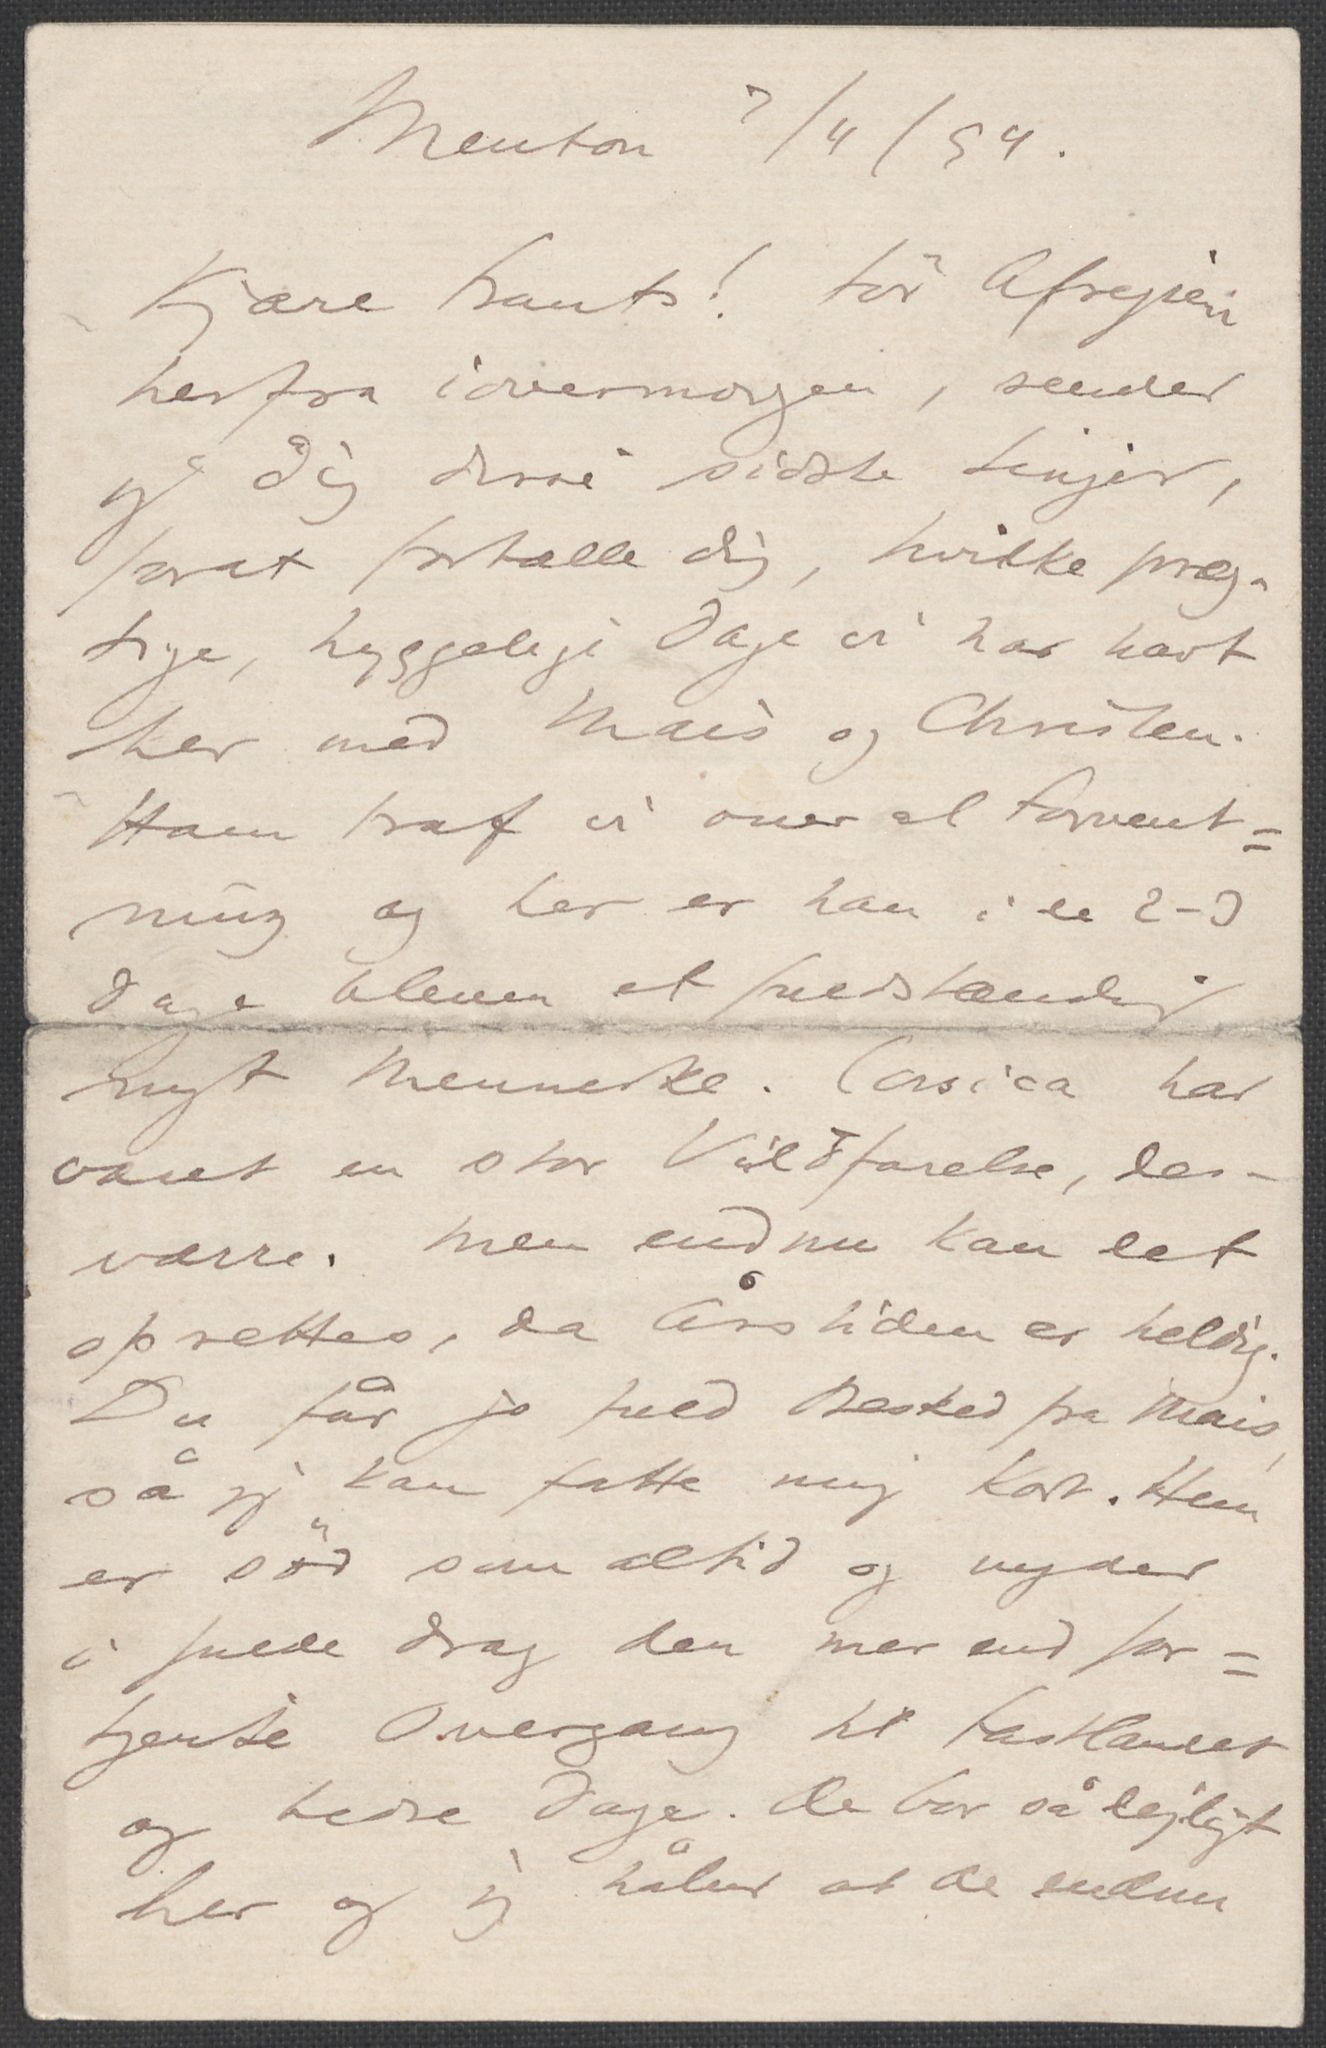 Menton 7/4/94.
Kjære Frants! Før Afrejsen
herfra iovermorgen, sender
jeg Dig disse sidste Linjer,
forat fortælle dig, hvilke præg-
tige, hyggelige Dage vi har havt
her med Mais og Christen.
Ham traf vi over al Forvent=
ning og her er han i de 2-3
Dage bleven et fuldstændigt
nyt Menneske. Corsica har
været en stor Vildfarelse, des-
værre. Men endnu kan det
oprettes, da Årstiden er heldig.
Du får jo fuld Besked fra Mais,
så jeg kan fatte mig kort. Hun
er sød som altid og nyder
i fulde Drag den mer end for=
tjente Overgang til Fastlandet
og bedre Dage. De bor så dejligt
her og jeg håber at de endnu